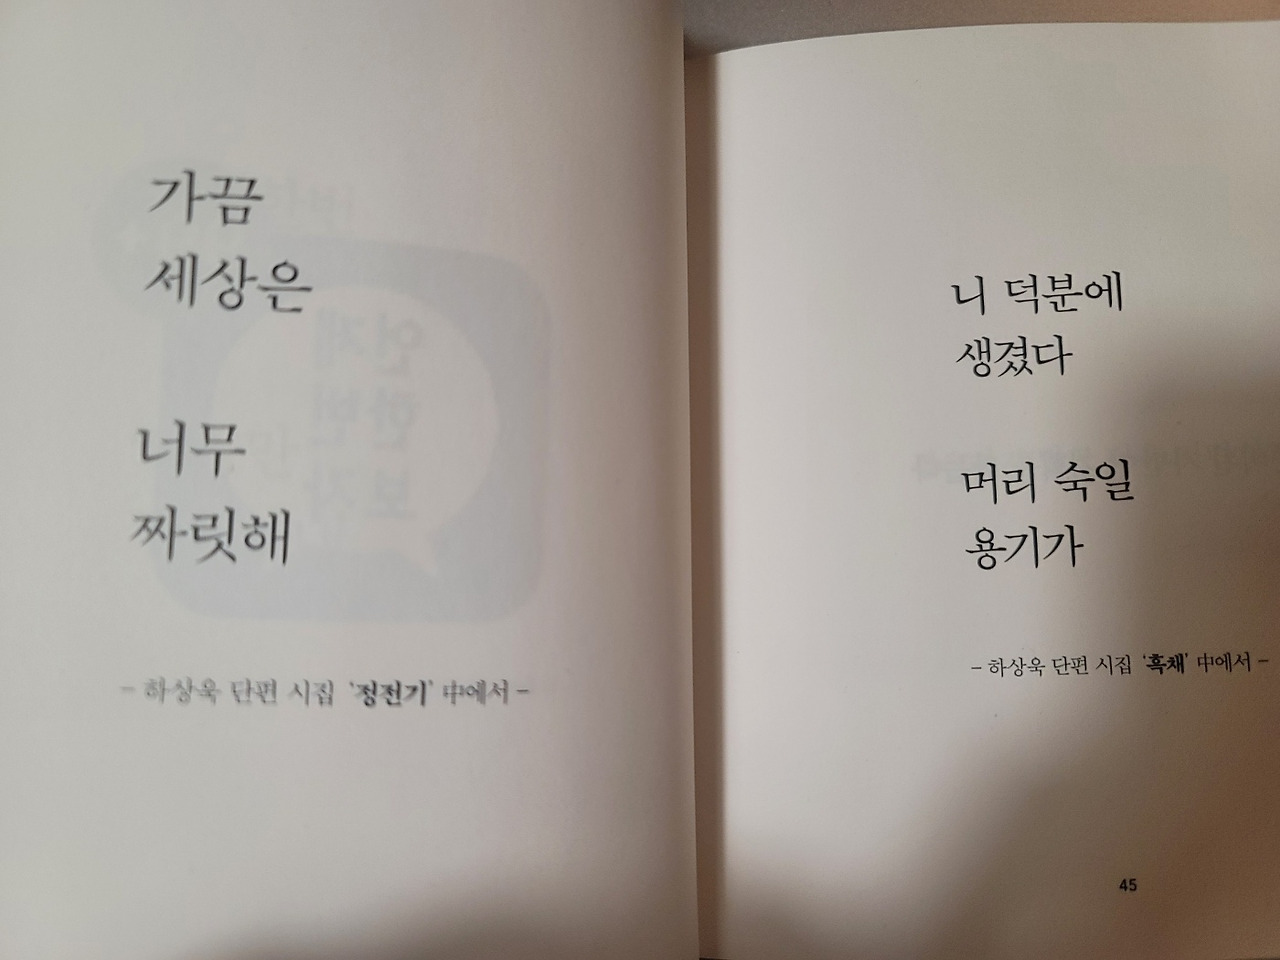 가끔
세상은
너무
짜릿해
- 하상욱 단편 시집 '정전기' 中에서 -
니 덕분에
생겼다
머리 숙일
용기가
- 하상욱 단편 시집 '흑채' 中에서 -
45